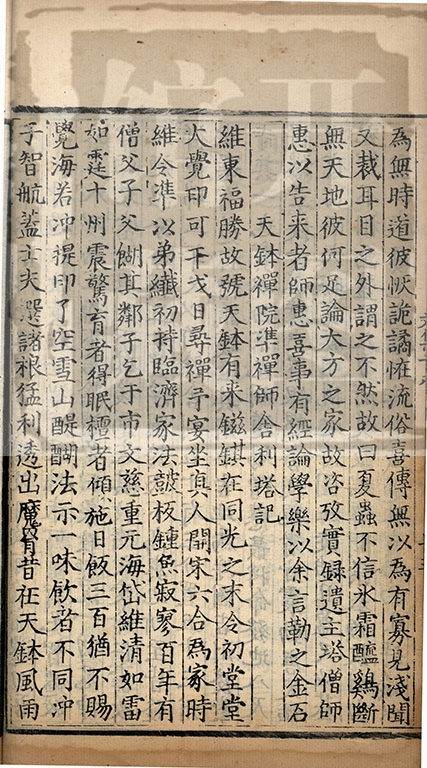 為無時道彼恢詭譎恠流俗喜傳無以為有寡見淺聞
又裁耳目之外謂之不然故曰夏蟲不信氷霜醯鷄斷
無天地彼何足論大方之家故咨攷實録遺主塔僧師
惠以告来者師惠喜事有經論學樂以余言勒之金石
天鉢禪院準禪師舎利塔記
維東福勝故號天鉢有来鎡錤在同光之末令初堂堂
大覺印可干戈日尋禪予宴坐真人開宋六合為家時
維令準以弟纎初祷臨濟家法皷板鍾魚寂寥百年有
僧父子父餬其鄰子乞于市文慈重元海岱維清如雷
如霆十州震驚盲者得眠檀者傾施日飯三百猶不賜
覺海若冲提印了空雪山醍醐法示一味飲者不同冲
子智航葢士夫選諸根猛利透出魔罥昔在天鉢風雨